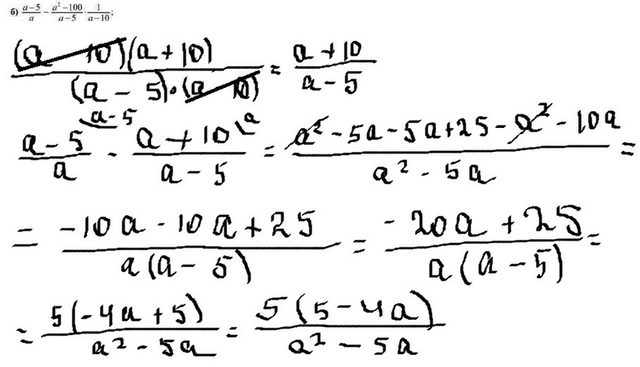 б) (a-5)/a - (a²-100)/(a-5) · 1/(a-10);
((a - 10)(a+10))/((a - 5)·(a - 10)) = (a+10)/(a-5)
(a-5)/a \a-5 - (a+10)/(a-5) \a = (a²-5a-5a+25-a²-10a)/(a²-5a) =
= (-10a-10a+25)/(a(a-5)) = (-20a+25)/(a(a-5)) =
= (5(-4a+5))/(a²-5a) = (5(5-4a))/(a²-5a)